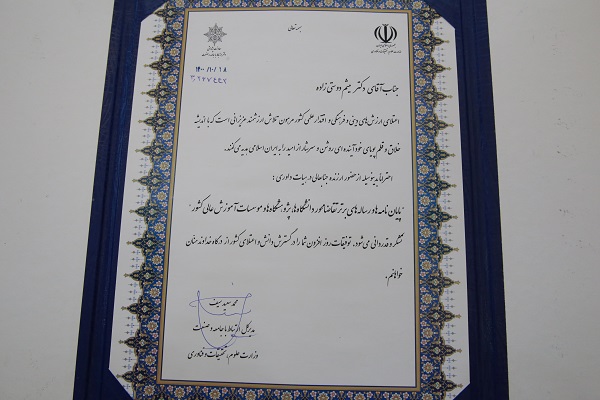 بسمه تعالی
۱۴۰۰/۱۰/۱۸
جناب آقای دکتر میثم دوستی زاده
اعتلای ارزش های دینی و فرهنگی و اقتدار علمی کشور مرهون تلاش ارزشمند عزیزانی است که با اندیشه
خلاق و قلم پویای خود آینده ای روشن و سرشار از امید را به ایران اسلامی هدیه می کنند.
احتراما بدینوسیله از حضور ارزنده جنابعالی در هیات داوری :
"پایان نامه ها و رساله های برتر تقاضامحور دانشگاه ها، پژوهشگاه ها و موسسات آموزش عالی کشور"
تشکر و قدردانی می شود. توفیقات روز افزون شما را در گسترش دانش و اعتلای کشور از درگاه خداوند منان
خواهانم.
محمد سعید سیف
مدیرکل ارتباط با جامعه و صنعت
وزارت علوم، تحقیقات و فناوری